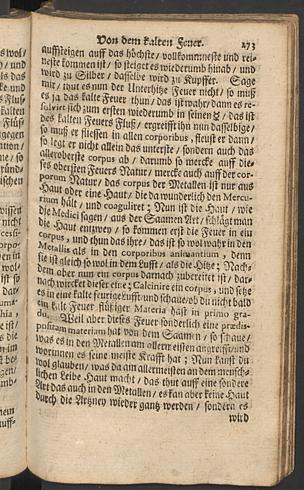 Von dem kalten Feuer. 273
auffsteigen auff das höchste / vollkommneste und rei-
neste kommen ist / so steiget es wiederumb hinab / und
wird zu Silber / dasselbe wird zu Kupffer. Sage
mir / thut es nun der Unterhitze Feuer nicht / so muß
es ja das kalte Feuer thun / das ist wahr / dann es re-
solvirt sich zum ersten wiederumb in seinen / das ist
des kalten Feuers Fluß / ergreifft ihn nun dasselbige /
so muß er fliessen in allen corporibus, fleust er dann /
so legt er nicht allein das unterste / sondern auch das
alleroberste corpus ab / darumb so mercke auff die-
ses obersten Feuers Natur / mercke auch auff der cor-
porum Natur / das corpus der Metallen ist nur aus
Haut oder eine Haut / die da wunderlich den Mercu-
rium hält / und coaguliret ; Nun ist die Haut / wie
die Medici sagen / aus der Saamen Art / schlägt man
die Haut entzwey / so kommen erst die Feuer in ein
corpus, und thun das ihre / das ist so wol wahr in den
Metallis als in den corporibus animantium, denn
sie ist gleich so wol in dem / als die Hitze ; Nach-
dem aber nun ein corpus darnach zubereitet ist / dar-
nach wircket dieser eine ; Calcinire ein corpus, und setze
es in eine kalte feurige / und schaue / ob du nicht bald
ein kalt Feuer flüßiger Materia hast in primo gra-
du. Weil aber dieses Feuer sonderlich eine prædis-
positam materiam hat von dem Saamen / so schaue /
was es in den Metallen am allermeisten angreifft / und
worinnen es seine meiste Krafft hat ; Nun kanst du
wol glauben / was da am allermeisten an dem mensch-
lichen Leibe Haut macht / das thut auff eine sondere
Art das auch in den Metallen / es kan aber keine Haut
durch die Artzney wieder gantz werden / sondern es
wird